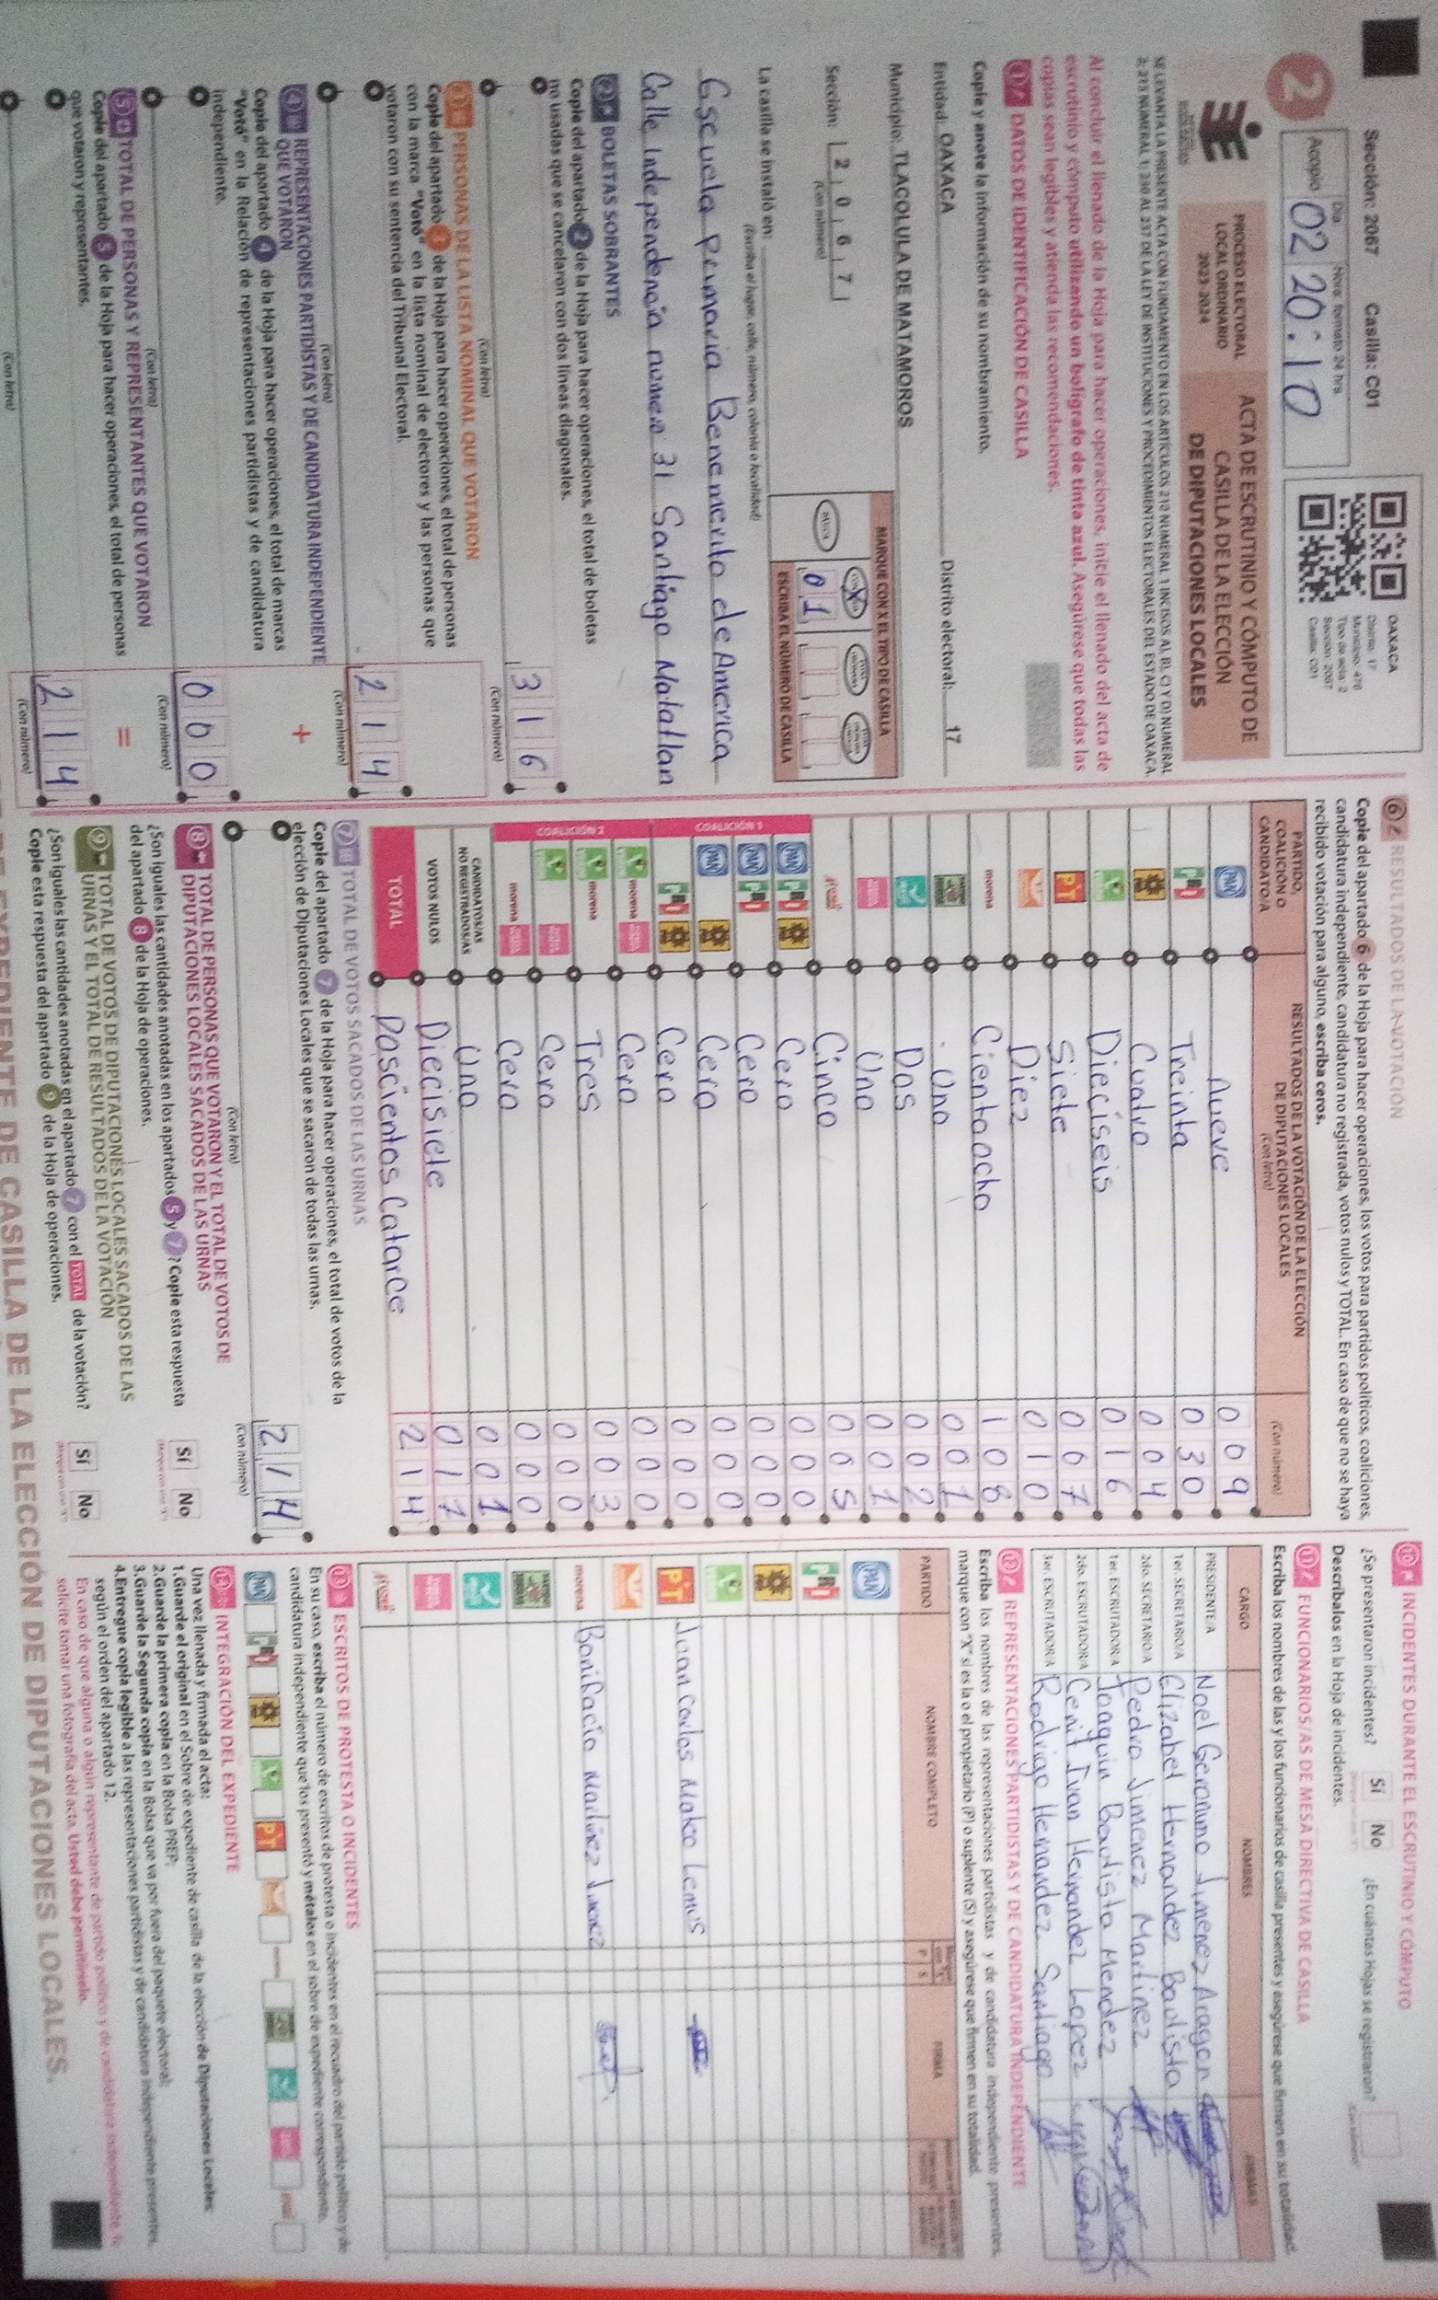 Sección: 2067 Casilla: C01
Día
Hora: formato 24 hrs.
Acopio 02 20:10
OAXACA
Distrito: 17
2
PROCESO ELECTORAL
LOCAL ORDINARIO
2023-2024
ACTA DE ESCRUTINIO Y CÓMPUTO DE
CASILLA DE LA ELECCIÓN
DE DIPUTACIONES LOCALES
Al concluir el llenado de la Hoja para hacer operaciones, inicie el llenado del acta de
escrutinio y cómputo utilizando un bolígrafo de tinta azul. Asegúrese que todas las
copias sean legibles y atienda las recomendaciones.
1 DATOS DE IDENTIFICACIÓN DE CASILLA
Copie y anote la información de su nombramiento.
Entidad: OAXACA Distrito electoral: 17
Municipio: TLACOLULA DE MATAMOROS
Sección: 2 0 6 7
(Con número)
MARQUE CON X EL TIPO DE CASILLA
X
0 1
ESCRIBA EL NÚMERO DE CASILLA
La casilla se instaló en:
(Escriba el lugar, calle, número, colonia o localidad)
Escuela Primaria Benemerito de America
Calle Independencia numero 31 Santiago Matatlan
2 BOLETAS SOBRANTES
Copie del apartado 2 de la Hoja para hacer operaciones, el total de boletas
no usadas que se cancelaron con dos líneas diagonales.
3 1 6
(Con letra) (Con número)
3 PERSONAS DE LA LISTA NOMINAL QUE VOTARON
Copie del apartado 3 de la Hoja para hacer operaciones, el total de personas
con la marca "Votó" en la lista nominal de electores y las personas que
votaron con su sentencia del Tribunal Electoral.
2 1 4
(Con letra) (Con número)
4 REPRESENTACIONES PARTIDISTAS Y DE CANDIDATURA INDEPENDIENTE
QUE VOTARON
+
Copie del apartado 4 de la Hoja para hacer operaciones, el total de marcas
"Votó" en la Relación de representaciones partidistas y de candidatura
independiente.
0 0 0
(Con letra) (Con número)
5 TOTAL DE PERSONAS Y REPRESENTANTES QUE VOTARON
=
Copie del apartado 5 de la Hoja para hacer operaciones, el total de personas
que votaron y representantes.
2 1 4
(Con letra) (Con número)
6 RESULTADOS DE LA VOTACIÓN
Copie del apartado 6 de la Hoja para hacer operaciones, los votos para partidos políticos, coaliciones,
candidatura independiente, candidatura no registrada, votos nulos y TOTAL. En caso de que no se haya
recibido votación para alguno, escriba ceros.
PARTIDO,
COALICIÓN O
CANDIDATO/A
RESULTADOS DE LA VOTACIÓN DE LA ELECCIÓN
DE DIPUTACIONES LOCALES
(Con letra)
(Con número)
PAN Nueve 0 0 9
PRI Treinta 0 3 0
PRD Cuatro 0 0 4
Diecíseis 0 1 6
PT Siete 0 0 7
Diez 0 1 0
morena Cientoocho 1 0 8
Uno 0 0 1
Dos 0 0 2
Uno 0 0 1
Cinco 0 0 5
COALICIÓN 1
PAN PRI PRD Cero 0 0 0
PAN PRI Cero 0 0 0
PAN PRD Cero 0 0 0
PRI PRD Cero 0 0 0
COALICIÓN 2
morena Cero 0 0 0
morena Tres 0 0 3
Cero 0 0 0
morena Cero 0 0 0
CANDIDATOS/AS
NO REGISTRADOS/AS
Uno 0 0 1
VOTOS NULOS Diecisiete 0 1 7
TOTAL Doscientos Catorce 2 1 4
7 TOTAL DE VOTOS SACADOS DE LAS URNAS
Copie del apartado 7 de la Hoja para hacer operaciones, el total de votos de la
elección de Diputaciones Locales que se sacaron de todas las urnas.
2 1 4
(Con letra) (Con número)
8 TOTAL DE PERSONAS QUE VOTARON Y EL TOTAL DE VOTOS DE
DIPUTACIONES LOCALES SACADOS DE LAS URNAS
¿Son iguales las cantidades anotadas en los apartados 5 y 7? Copie esta respuesta
del apartado 8 de la Hoja de operaciones.
Sí No
9 TOTAL DE VOTOS DE DIPUTACIONES LOCALES SACADOS DE LAS
URNAS Y EL TOTAL DE RESULTADOS DE LA VOTACIÓN
¿Son iguales las cantidades anotadas en el apartado 7 con el TOTAL de la votación?
Copie esta respuesta del apartado 9 de la Hoja de operaciones.
Sí No
10 INCIDENTES DURANTE EL ESCRUTINIO Y CÓMPUTO
¿Se presentaron incidentes? Sí No ¿En cuántas Hojas se registraron?
Descríbalos en la Hoja de incidentes.
11 FUNCIONARIOS/AS DE MESA DIRECTIVA DE CASILLA
Escriba los nombres de las y los funcionarios de casilla presentes y asegúrese que firmen en su totalidad.
CARGO NOMBRES FIRMAS
PRESIDENTE/A Noel Geronimo Jimenez Aragon
1er. SECRETARIO/A Elizabet Hernandez Bautista
2do. SECRETARIO/A Pedro Jimenez Martinez
1er. ESCRUTADOR/A Joaquin Bautista Mendez
2do. ESCRUTADOR/A Cenit Ivan Hernandez Lopez
3er. ESCRUTADOR/A Rodrigo Hernandez Santiago
12 REPRESENTACIONES PARTIDISTAS Y DE CANDIDATURA INDEPENDIENTE
Escriba los nombres de las representaciones partidistas y de candidatura independiente presentes,
marque con "X" si es la o el propietario (P) o suplente (S) y asegúrese que firmen en su totalidad.
PARTIDO NOMBRE COMPLETO P S FIRMA
PAN
PRI
PRD
PT Juan Carlos Mateo Lemus
morena Bonifacio Martinez
13 ESCRITOS DE PROTESTA O INCIDENTES
En su caso, escriba el número de escritos de protesta o incidentes en el recuadro del partido político y de
candidatura independiente que los presentó y métalos en el sobre de expediente correspondiente.
PAN PRI PRD PT
14 INTEGRACIÓN DEL EXPEDIENTE
Una vez llenada y firmada el acta:
1.Guarde el original en el Sobre de expediente de casilla de la elección de Diputaciones Locales;
2.Guarde la primera copia en la Bolsa PREP;
3.Guarde la Segunda copia en la Bolsa que va por fuera del paquete electoral;
4.Entregue copia legible a las representaciones partidistas y de candidatura independiente presentes,
según el orden del apartado 12.
solicite tomar una fotografía del acta. Usted debe permitírselo.
EXPEDIENTE DE CASILLA DE LA ELECCIÓN DE DIPUTACIONES LOCALES.